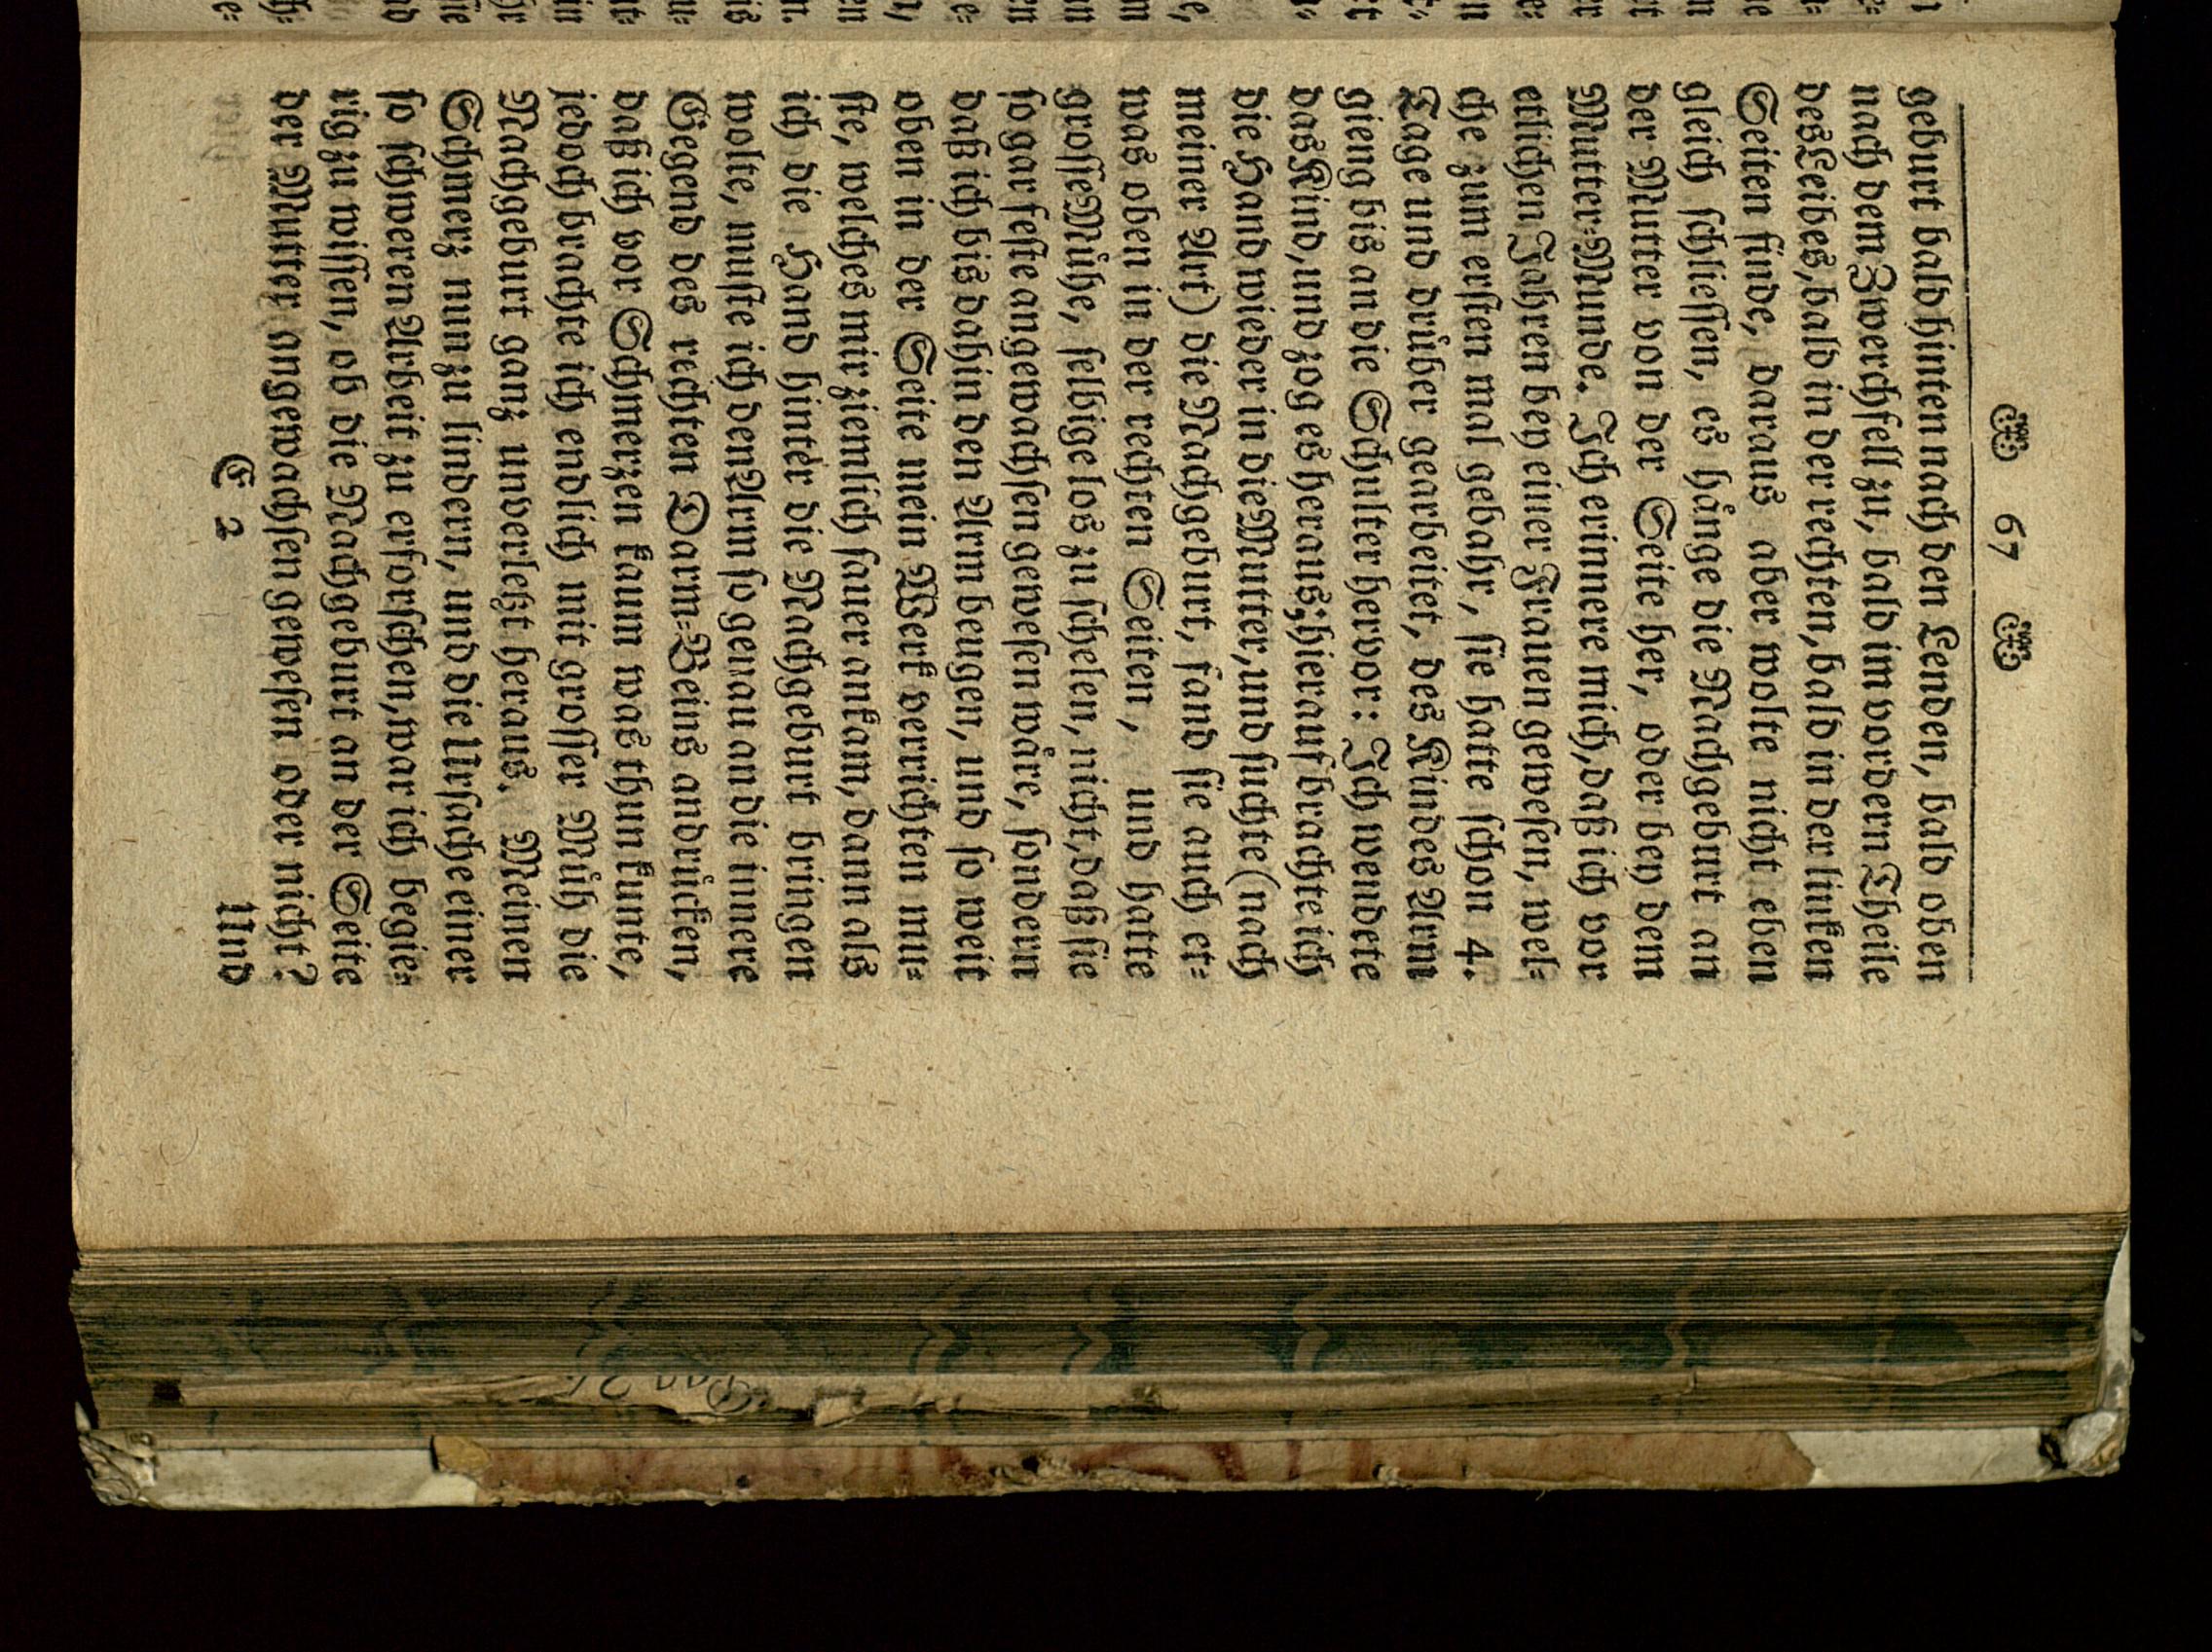 67
geburt bald hinten nach den Lenden, bald oben
nach dem Zwerchfell zu, bald im vordern Theile
des Leibes, bald in der rechten, bald in der lincken
Seiten finde, daraus aber wolte nicht eben
gleich schliessen, es hånge die Nachgeburt an
der Mutter von der Seite her, oder bey dem
Mutter-Munde. Ich erinnere mich, daß ich vor
etlichen Jahren bey einer Frauen gewesen, wel-
che zum ersten mal gebahr, sie hatte schon 4.
Tage und drůber gearbeitet, des Kindes Arm
gieng bis an die Schulter hervor: Ich wendete
das Kind, und zog es heraus; hierauf brachte ich
die Hand wieder in die Mutter, und suchte (nach
meiner Art) die Nachgeburt, fand sie auch et-
was oben in der rechten Seiten, und hatte
grosse Můhe, selbige los zu schelen, nicht, daß sie
so gar feste angewachsen gewesen wåre, sondern
daß ich bis dahin den Arm beugen, und so weit
oben in der Seite mein Werk verrichten mu-
ste, welches mir ziemlich sauer ankam, dann als
ich die Hand hinter die Nachgeburt bringen
wolte, muste ich den Arm so genau an die innere
Gegend des rechten Darm-Beins andrůcken,
daß ich vor Schmerzen kaum was thun kunte,
jedoch brachte ich endlich mit grosser Můh die
Nachgeburt ganz unverletzt heraus. Meinen
Schmerz nun zu lindern, und die Ursache einer
so schweren Arbeit zu erforschen, war ich begie-
rig zu wissen, ob die Nachgeburt an der Seite
der Mutter angewachsen gewesen oder nicht?
E 2 Und